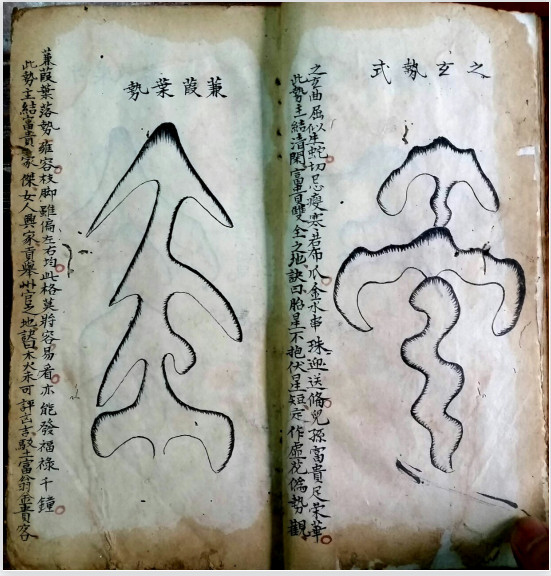 之玄勢式
之玄曲屈似生蛇切忌瘦寒若布瓜金水串珠迎送俻兒孫富貴足荣華
此勢主結清閑富貴雙全之地訣曰胎星不抱伏星短定作虛花倫勢觀
蒹葭葉勢
蒹葭葉落勢雍容枝脚雖偏左右均此格莫將容易看亦能發福祿千鐘
此勢主結富貴豪傑女人興家貢舉州官之地訣曰木火未可評言吉馱土富翁出貴客